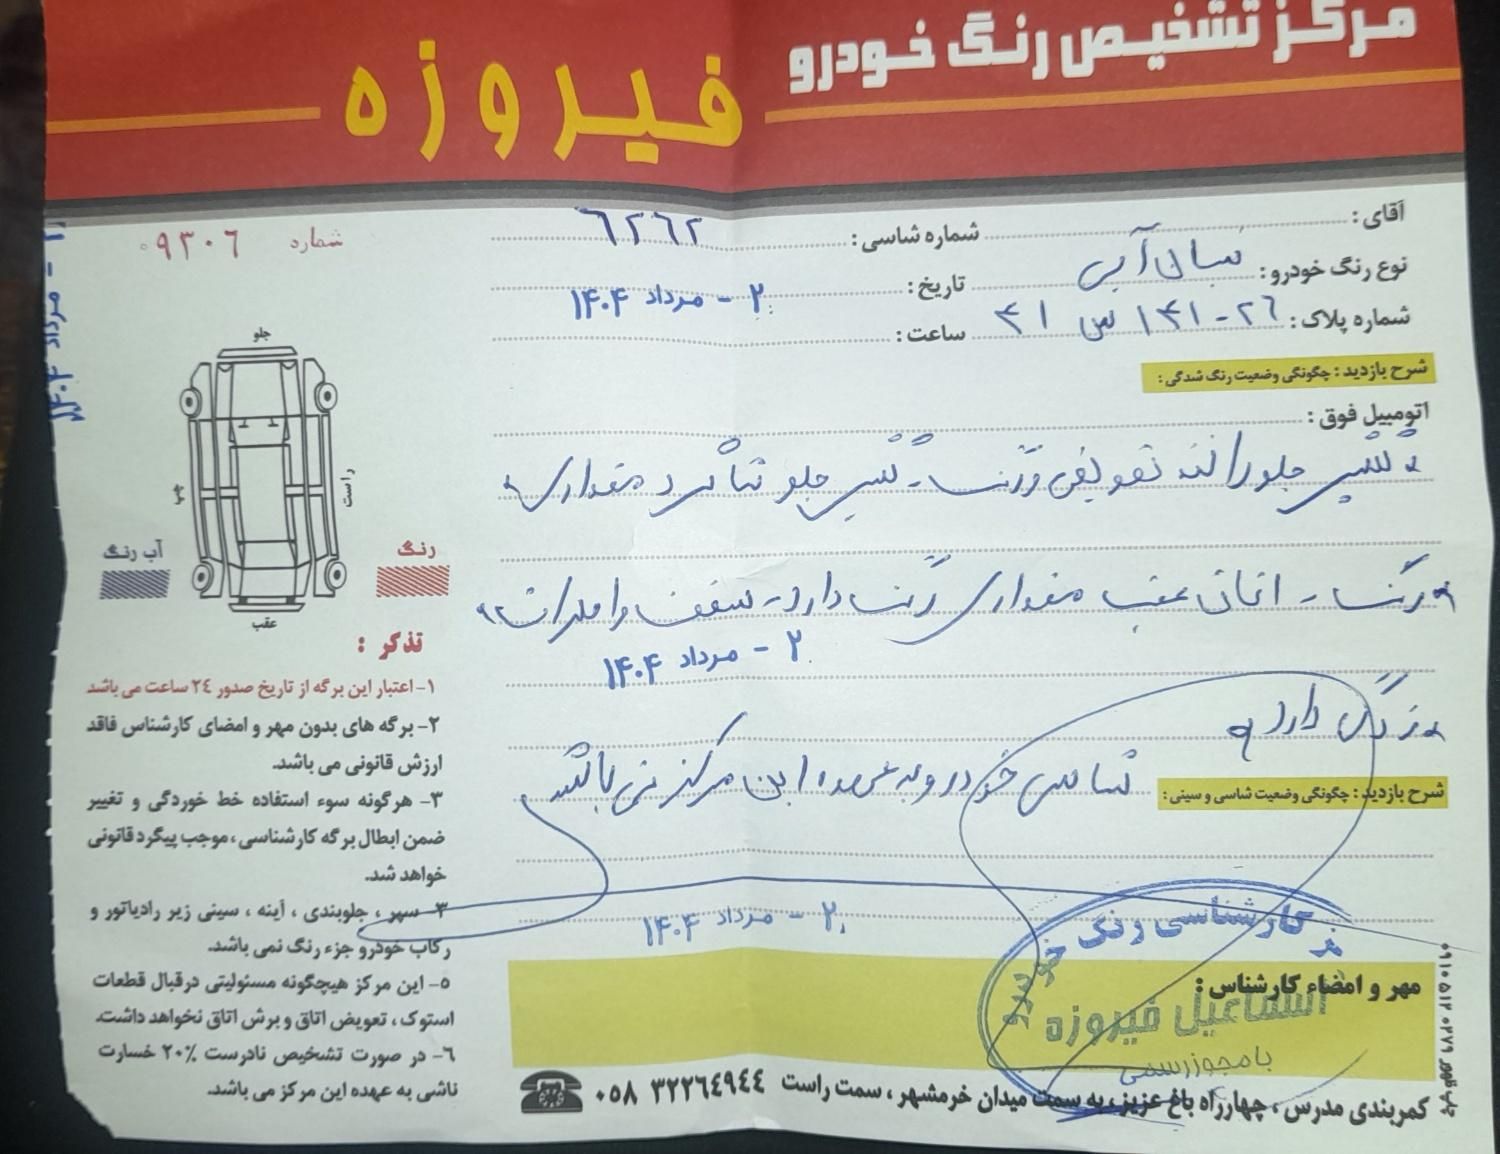 مرکز تشخیص رنگ خودرو
فیروزه
شماره ۰۹۳۰۶
آقای :
شماره شاسی : ۶۲۶۲
نوع رنگ خودرو : آبی
تاریخ : ۲ - مرداد ۱۴۰۴
شماره پلاک : ۲۶ - ۱۴۱ س ۴۱
ساعت :
شرح بازدید : چگونگی وضعیت رنگ شدگی :
اتومبیل فوق :
گلگیر جلو راننده تعویض و رنگ - گلگیر جلو شاگرد مقداری
رنگ - اتاق عقب مقداری رنگ دارد - سقف و اطراف
۲ - مرداد ۱۴۰۴
رنگ دارد
شرح بازدید : چگونگی وضعیت شاسی و سینی : شاسی خودرو به عهده این مرکز نمی باشد
۲ - مرداد ۱۴۰۴
مهر و امضاء کارشناس :
کارشناسی رنگ خودرو
اسماعیل فیروزه
با مجوز رسمی
کمربندی مدرس ، چهارراه باغ عزیز ، به سمت میدان خرمشهر ، سمت راست ۳۲۲۶۴۹۴۴ ۰۵۸
جلو
راست
چپ
عقب
رنگ
آب رنگ
تذکر :
۱- اعتبار این برگه از تاریخ صدور ۲۴ ساعت می باشد
۲- برگه های بدون مهر و امضای کارشناس فاقد
ارزش قانونی می باشد.
۳- هرگونه سوء استفاده خط خوردگی و تغییر
ضمن ابطال برگه کارشناسی ، موجب پیگرد قانونی
خواهد شد.
۴- سپر ، جلوبندی ، آینه ، سینی زیر رادیاتور و
رکاب خودرو جزء رنگ نمی باشد.
۵- این مرکز هیچگونه مسئولیتی در قبال قطعات
استوک ، تعویض اتاق و برش اتاق نخواهد داشت.
۶- در صورت تشخیص نادرست ۲۰٪ خسارت
ناشی به عهده این مرکز می باشد.